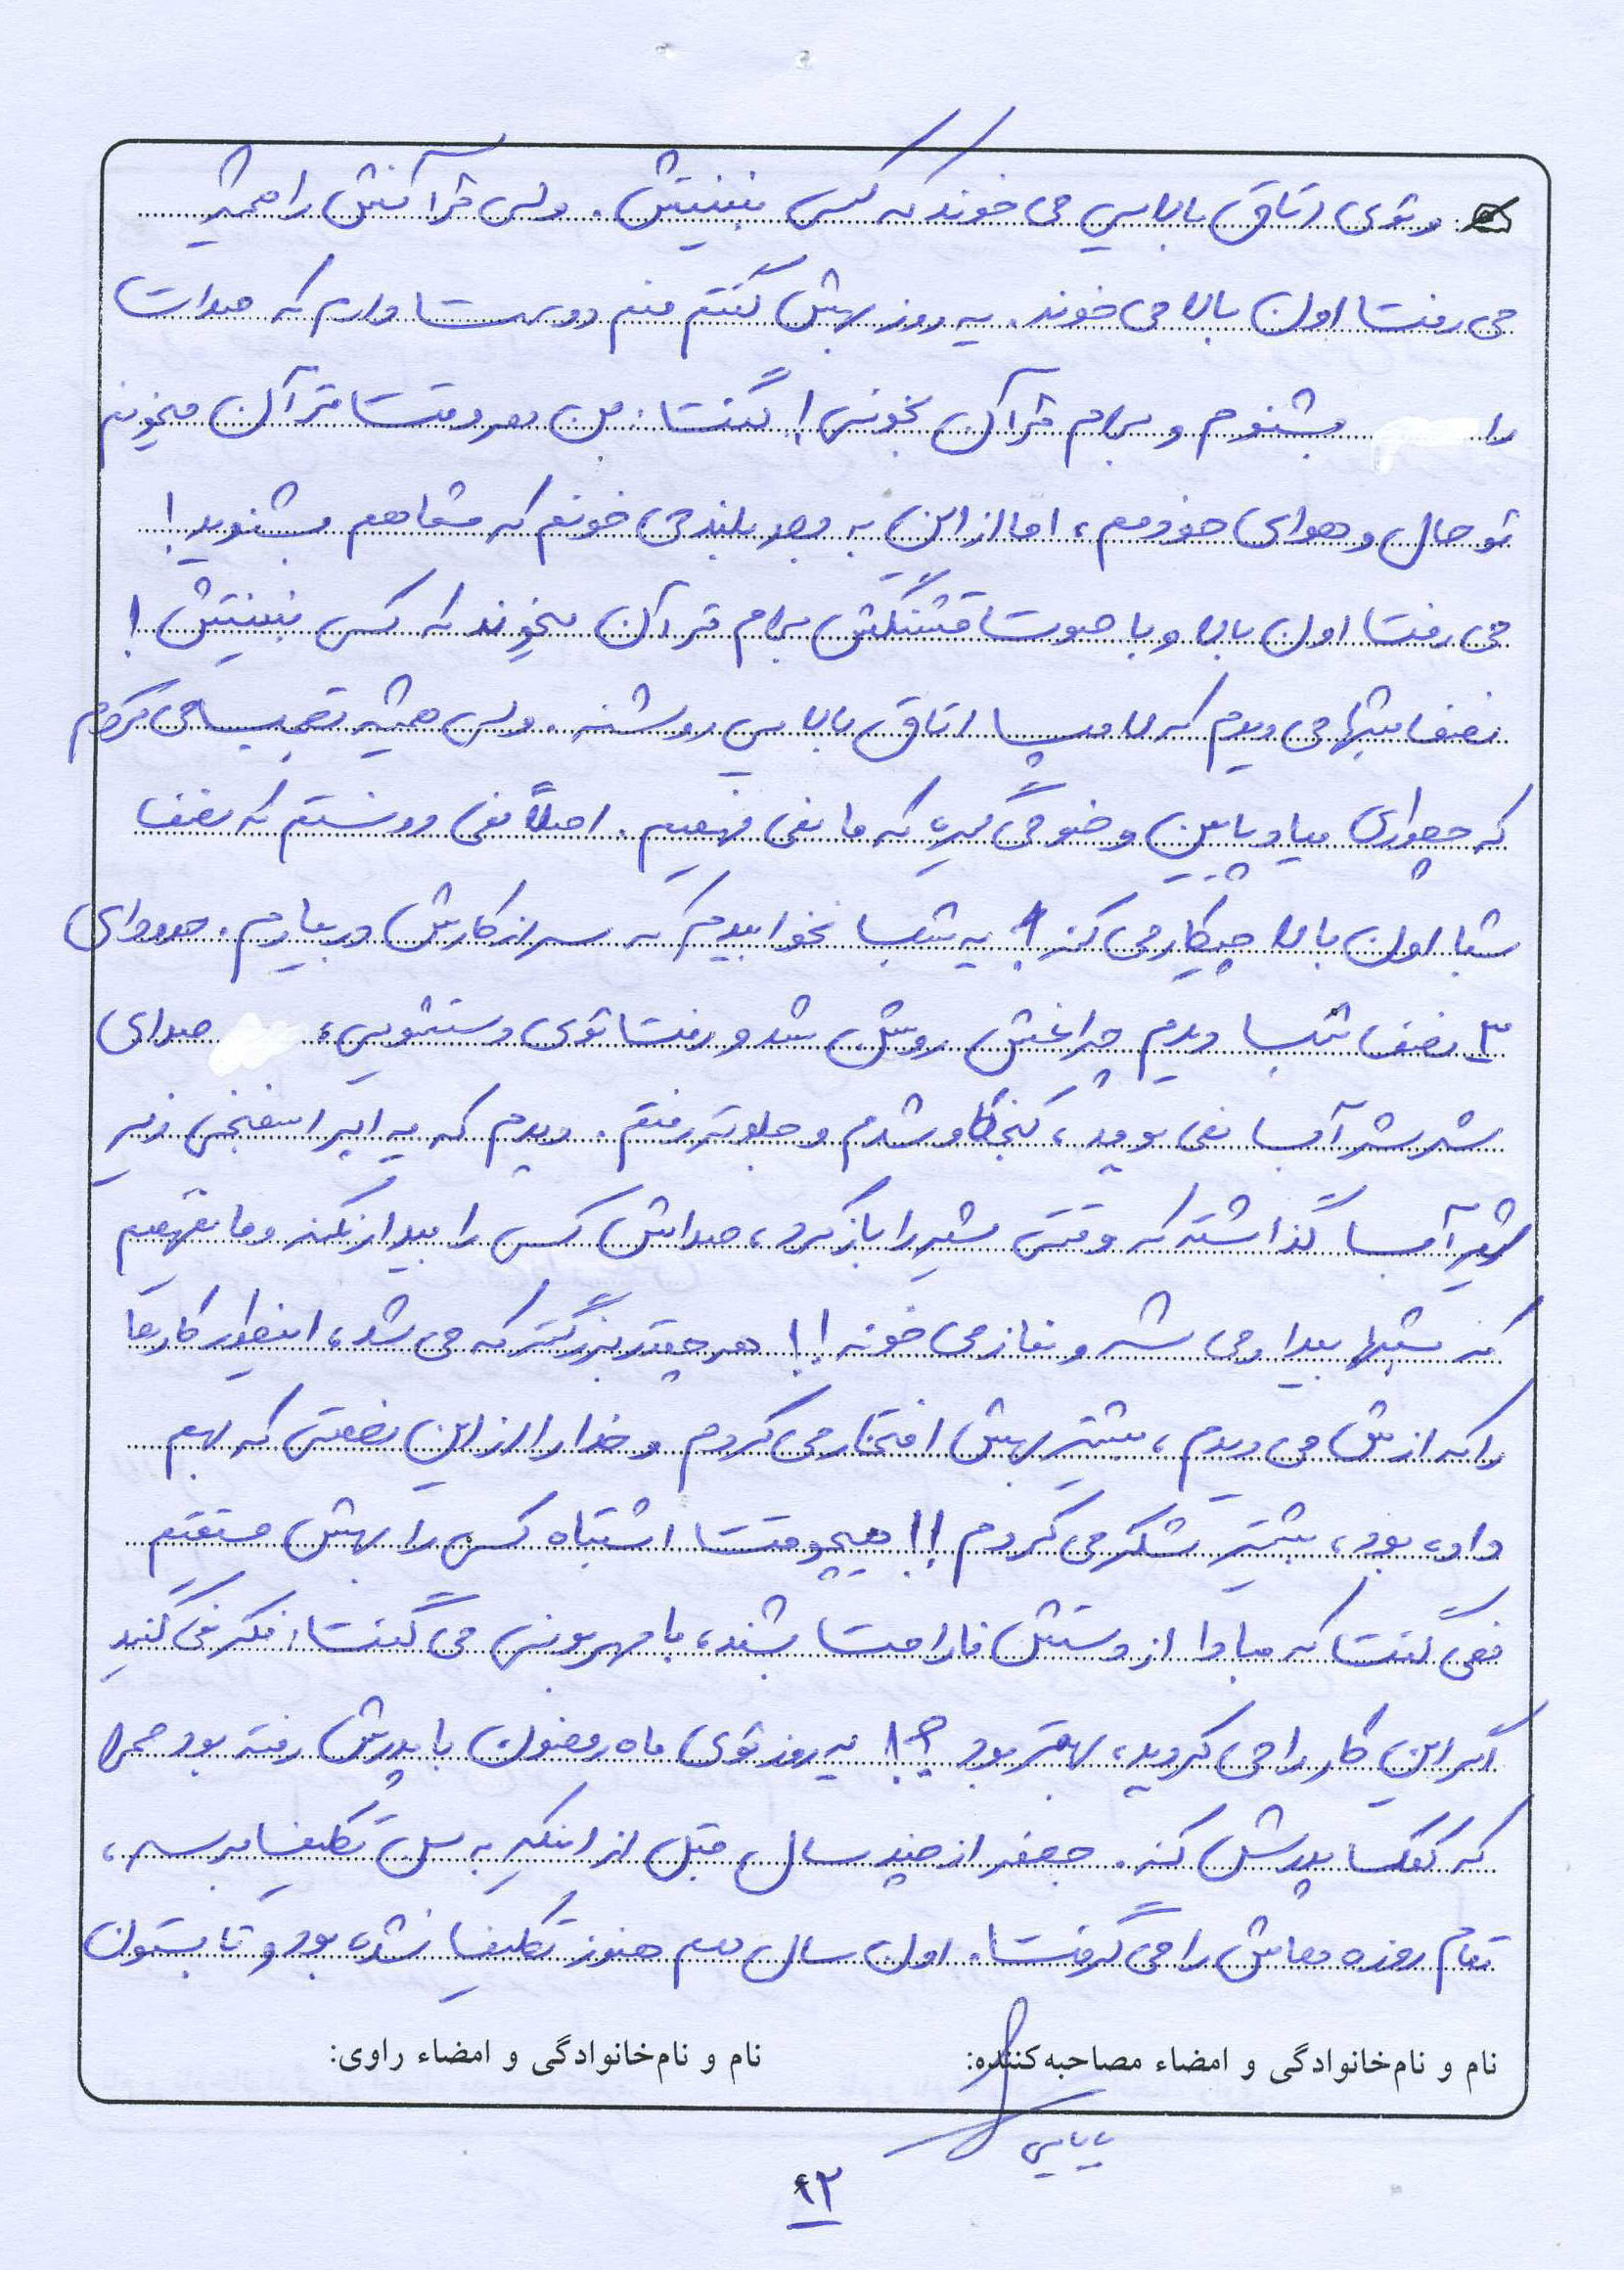 و توی اتاق بالایی می خوند که کسی نبینتش. ولی قرآنش را همیشه
می رفت اون بالا می خوند. یه روز بهش گفتم منم دوست دارم که صدات
را بشنوم و برام قرآن بخونی! گفت: من هر وقت قرآن میخونم
تو حال و هوای خودمم، اما از این به بعد بلند می خونم که شما هم بشنوید!
می رفت اون بالا و با صوت قشنگش برام قرآن میخوند که کسی نبینتش!
نصف شبها می دیدم که لامپ اتاق بالایی روشنه. ولی همیشه تعجب می کردم
که چطوری میاد پایین وضو می گیره که ما نمی فهمیم. اصلاً نمی دونستم که نصف
شب اون بالا چیکار می کنه؟ یه شب نخوابیدم که سر از کارش در بیارم. حدودای
۳ نصف شب دیدم چراغش روشن شد و رفت توی دستشویی، صدای
شرشر آب نمی یومد، کنجکاو شدم و جلوتر رفتم. دیدم که یه ابر اسفنجی زیر
شیر آب گذاشته که وقتی شیر را باز کرد، صدایش کسی را بیدار نکنه و ما نفهمیم
که شبها بیدار می شه و نماز می خونه!! هر چقدر بزرگتر که می شد، اینطور کارها
را که ازش می دیدم، بیشتر بهش افتخار می کردم و خدا را از این نعمتی که بهم
داده بود، بیشتر شکر می کردم!! هیچوقت اشتباه کسی را بهش مستقیم
نمی گفت که مبادا از دستش ناراحت بشند، با مهربونی می گفت: فکر نمی کنید
اگر این کار را می کردید، بهتر بود؟! یه روز توی ماه رمضون با پدرش رفته بود صحرا
که کمک پدرش کنه. جعفر از چند سال قبل از اینکه به سن تکلیف برسه،
تمام روزه هاش را می گرفت. اون سال هم هنوز تکلیف نشده بود و تابستون
نام و نام‌خانوادگی و امضاء مصاحبه‌کننده: نام و نام‌خانوادگی و امضاء راوی:
بابایی
۴۲